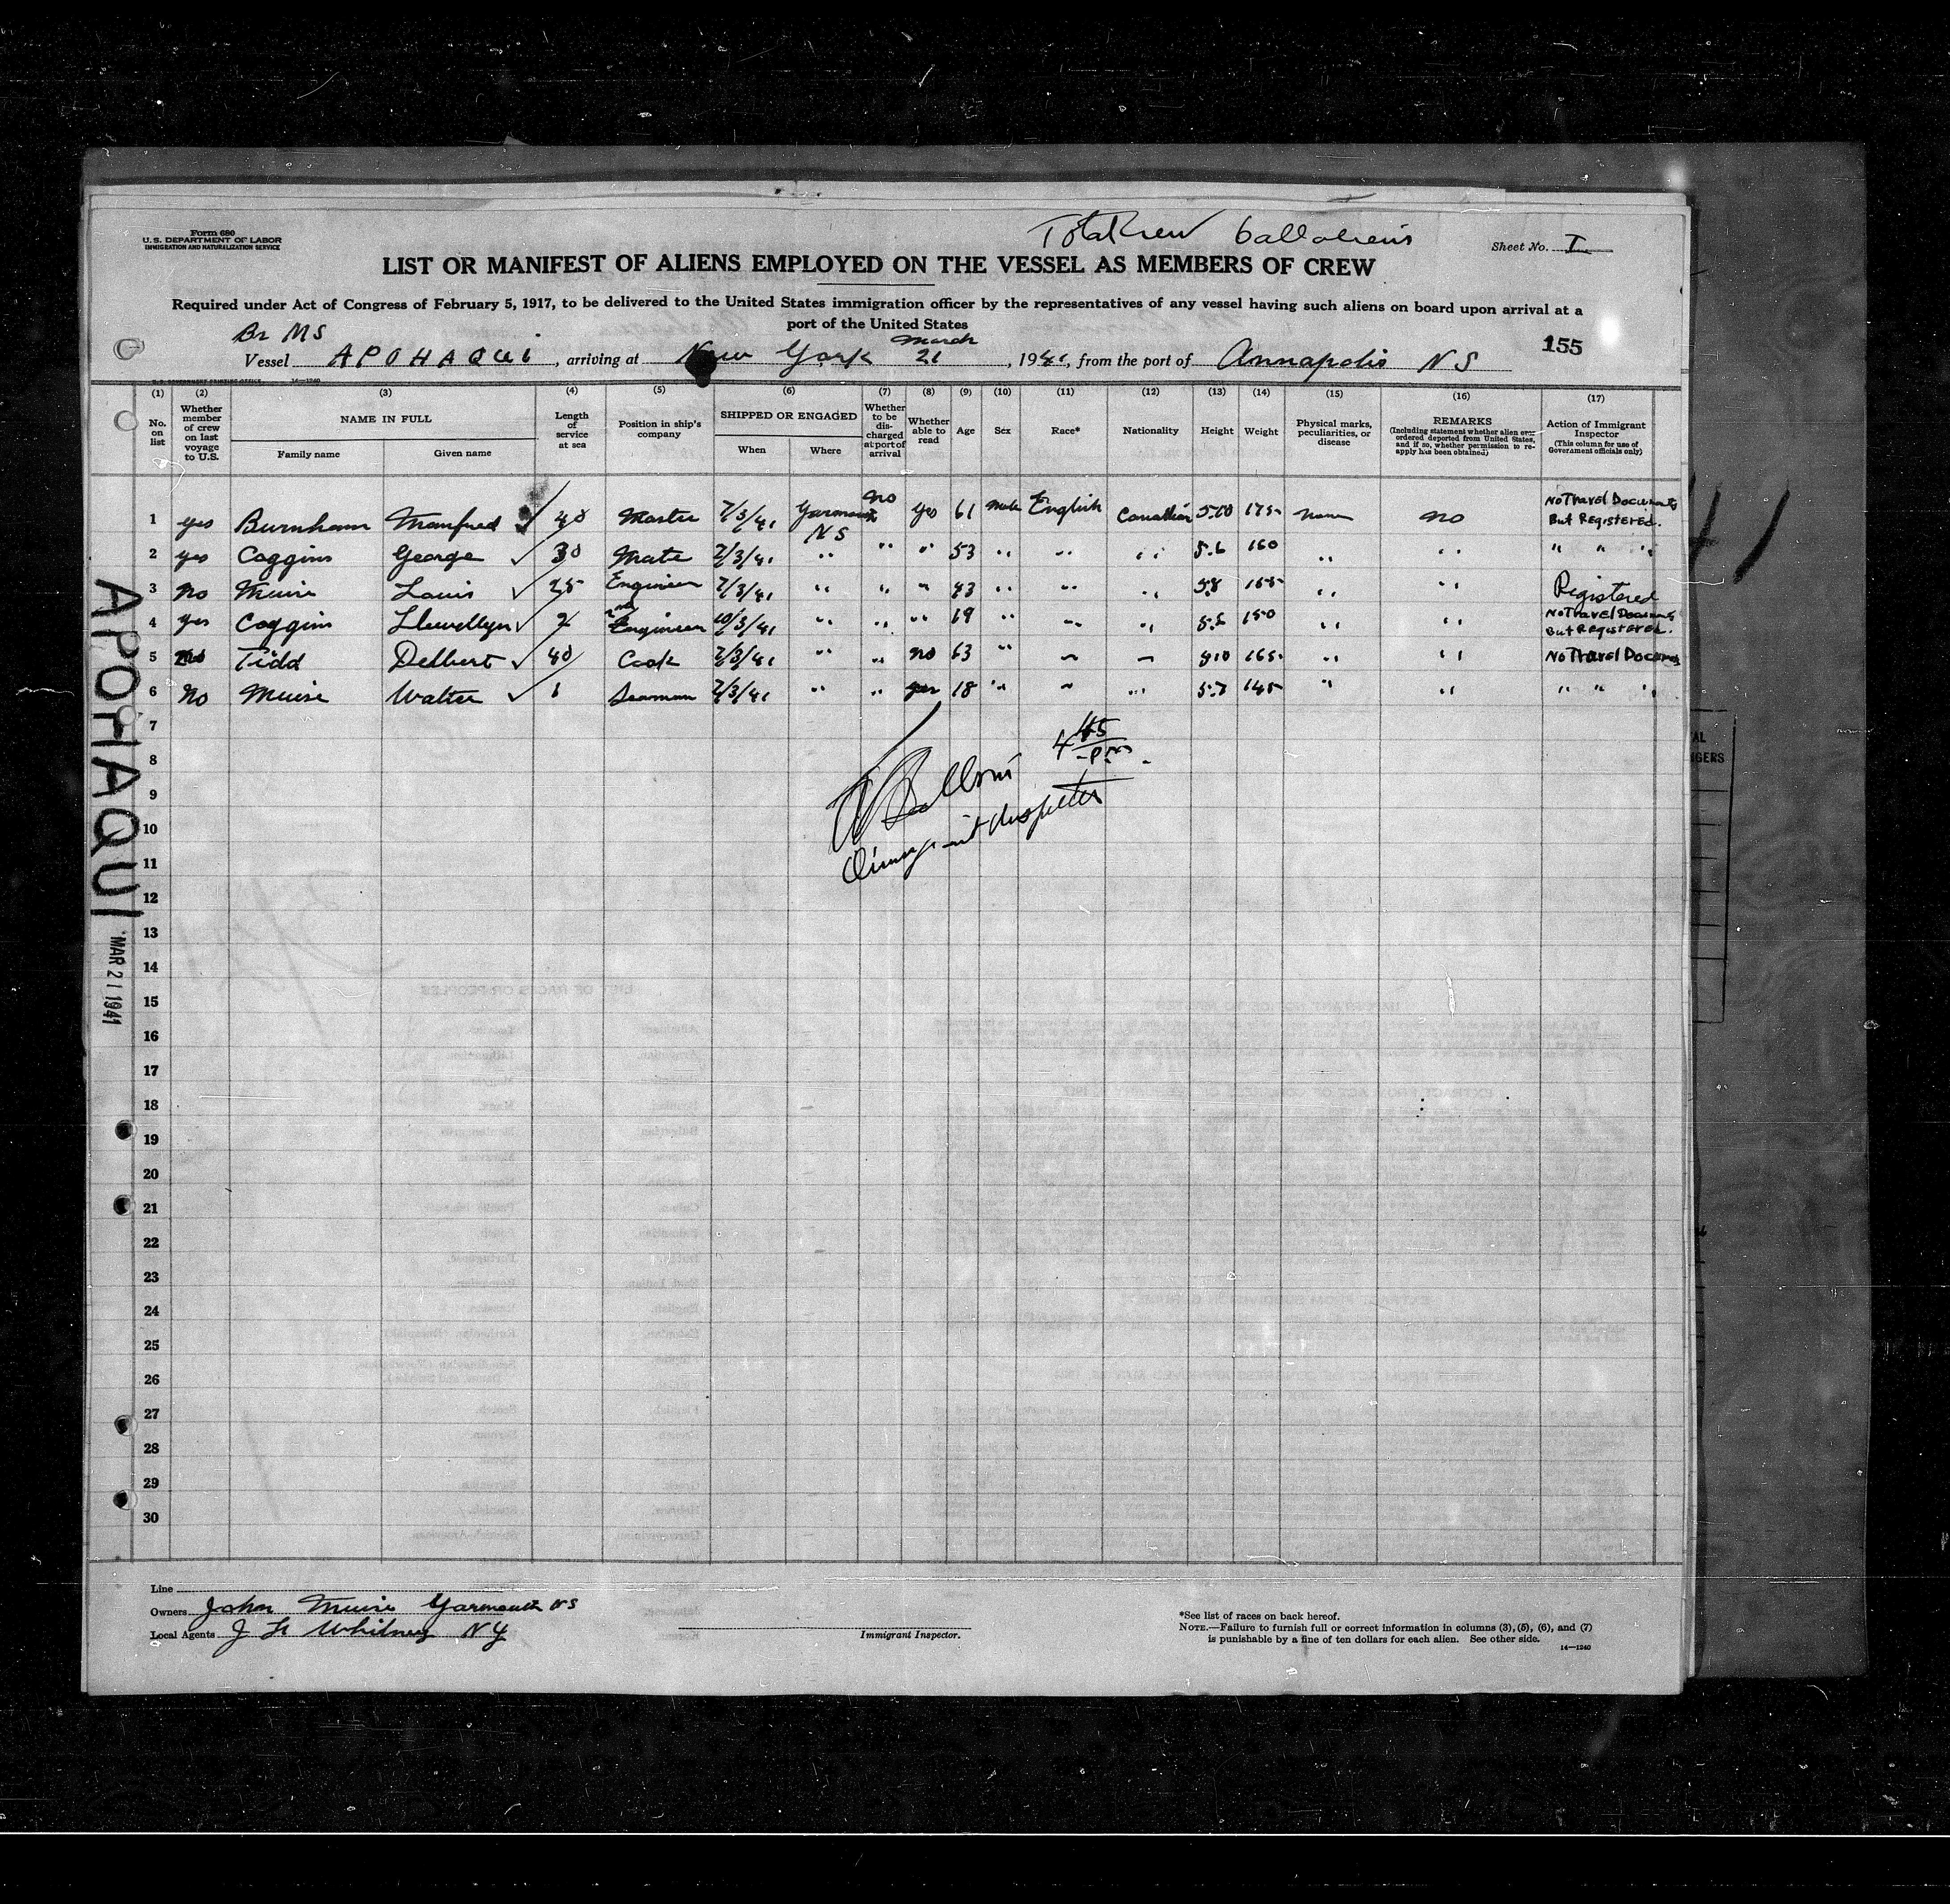 Total Crew 6 all aliens
Form 680
U. S. DEPARTMENT OF LABOR
IMMIGRATION AND NATURALIZATION SERVICE
Sheet No. I
LIST OR MANIFEST OF ALIENS EMPLOYED ON THE VESSEL AS MEMBERS OF CREW
Required under Act of Congress of February 5, 1917, to be delivered to the United States immigration officer by the representatives of any vessel having such aliens on board upon arrival at a
port of the United States
155
Br MS
Vessel APOHAQUI, arriving at New York March 21, 1941, from the port of Annapolis NS
U. S. GOVERNMENT PRINTING OFFICE 14—1240
(1) (2) (3) (4) (5) (6) (7) (8) (9) (10) (11) (12) (13) (14) (15) (16) (17)
No. on list
Whether member of crew on last voyage to U.S.
NAME IN FULL
Family name
Given name
Length of service at sea
Position in ship's company
SHIPPED OR ENGAGED
When
Where
Whether to be discharged at port of arrival
Whether able to read
Age
Sex
Race*
Nationality
Height
Weight
Physical marks, peculiarities, or disease
REMARKS
(Including statement whether alien ever ordered deported from United States, and if so, whether permission to reapply has been obtained)
Action of Immigrant Inspector
(This column for use of Government officials only)
1 yes Burnham Manfred ✓ 40 Master 7/3/41 Yarmouth NS no yes 61 male English Canadian 5.00 175 none no No Travel Documents But Registered.
2 yes Coggins George ✓ 30 Mate 7/3/41 " " " 53 " " " 5.6 160 " " " " "
3 no Muise Louis ✓ 25 Engineer 7/3/41 " " " 43 " " " 5.8 165 " " Registered
4 yes Coggins Llewellyn ✓ 2 2nd Engineer 10/3/41 " " " 19 " " " 5.6 150 " " No Travel Documents But Registered.
5 no Tidd Delbert ✓ 40 Cook 7/3/41 " " no 63 " " " 5.10 165 " " No Travel Documents
6 no Muise Walter ✓ 1 Seaman 7/3/41 " " yes 18 " " " 5.7 145 " " " " "
7
8
9
10
11
12
13
14
15
16
17
18
19
20
21
22
23
24
25
26
27
28
29
30
4 45 P.M.
Immigrant Inspector
APOHAQUI
MAR 21 1941
Line
Owners John Muise Yarmouth NS
Local Agents J H Whitney NY
Immigrant Inspector.
*See list of races on back hereof.
NOTE.—Failure to furnish full or correct information in columns (3), (5), (6), and (7)
is punishable by a fine of ten dollars for each alien. See other side.
14—1240